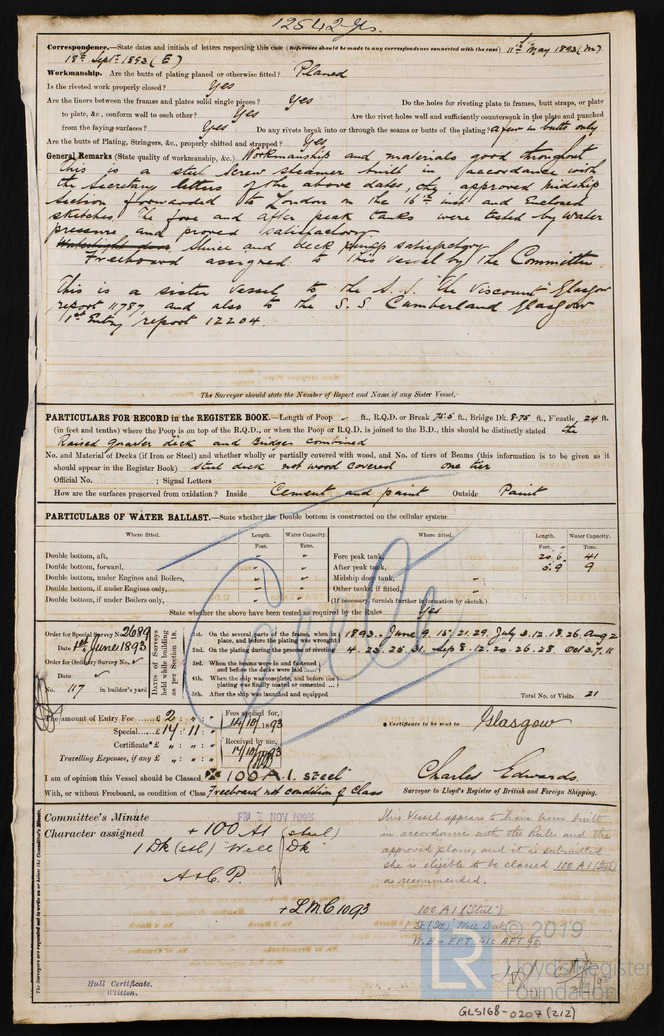 12542 Gls.
Correspondence.—State dates and initials of letters respecting this case (Reference should be made to any correspondence connected with the case) 11th May 1893 (M)
18th Sept. 1893 (E)
Workmanship. Are the butts of plating planed or otherwise fitted? Planed
Is the riveted work properly closed? Yes
Are the liners between the frames and plates solid single pieces? Yes Do the holes for riveting plate to frames, butt straps, or plate
to plate, &c., conform well to each other? Yes Are the rivet holes well and sufficiently countersunk in the plate and punched
from the faying surfaces? Yes Do any rivets break into or through the seams or butts of the plating? a few in butts only
Are the butts of Plating, Stringers, &c., properly shifted and strapped? Yes
General Remarks (State quality of workmanship, &c.) Workmanship and materials good throughout
This is a steel screw steamer built in accordance with
the Secretary letters of the above dates, the approved midship
section forwarded to London on the 16th inst and Enclosed
sketches. The fore and after peak tanks were tested by water
pressure and proved satisfactory.
Watertight doors Sluice and deck pumps satisfactory
Freeboard assigned to this vessel by the Committee.
This is a sister vessel to the S.S. "The Viscount" Glasgow
report 11787 and also to the S.S. Camberland Glasgow
1st Entry report 12204.
The Surveyor should state the Number of Report and Name of any Sister Vessel.
PARTICULARS FOR RECORD in the REGISTER BOOK.—Length of Poop - ft., R.Q.D. or Break 75.5 ft., Bridge Dk. 8.75 ft., F'castle 24 ft.
(in feet and tenths) where the Poop is on top of the R.Q.D., or when the Poop or R.Q.D. is joined to the B.D., this should be distinctly stated the
Raised quarter deck and Bridge combined
No. and Material of Decks (if Iron or Steel) and whether wholly or partially covered with wood, and No. of tiers of Beams (this information is to be given as it
should appear in the Register Book) steel deck not wood covered one tier
Official No. ; Signal Letters
How are the surfaces preserved from oxidation? Inside Cement and paint Outside Paint
PARTICULARS OF WATER BALLAST.—State whether the Double bottom is constructed on the cellular system
Where fitted. Length. Water Capacity. Where fitted. Length. Water Capacity.
Feet. Tons. Feet. Tons.
Double bottom, aft, " " Fore peak tank, 20.6 41
Double bottom, forward, " " After peak tank, 5.9 9
Double bottom, under Engines and Boilers, " " Midship deep tank, "
Double bottom, if under Engines only, " " Other tanks, if fitted, "
Double bottom, if under Boilers only, " " (If necessary, furnish further information by sketch.)
State whether the above have been tested as required by the Rules Yes
Order for Special Survey No. 2689
Date 1st June 1893
Order for Ordinary Survey No.
Date
No. 117 in builder's yard
Dates of Surveys held while building as per Section 18.
1st. On the several parts of the frame, when in place, and before the plating was wrought 1893. June 9. 15. 21. 29. July 3. 12. 18. 26. Aug 2
2nd. On the plating during the process of riveting 4. 23. 25. 31. Sep 8. 12. 20. 26. 28. Oct 3. 7. 11
3rd. When the beams were in and fastened and before the decks were laid
4th. When the ship was complete, and before the plating was finally coated or cemented
5th. After the ship was launched and equipped
Total No. of Visits 21
The amount of Entry Fee £ 2 : " : "
Special £ 14 : 11 : "
Certificate* £ " : " : "
Travelling Expenses, if any £ " : " : "
Fees applied for,
14/10/1893
Received by me,
17/10/1893
* Certificate to be sent to Glasgow
I am of opinion this Vessel should be Classed ✠ 100 A.1. steel
With, or without Freeboard, as condition of Class Freeboard not condition of Class
Charles Edwards.
Surveyor to Lloyd's Register of British and Foreign Shipping.
Committee's Minute FRI 3 NOV 1893
Character assigned + 100 A1 (steel)
1 Dk (stl) Well Dk
A & C. P.
+ L.M.C. 10.93
This Vessel appears to have been built
in accordance with the Rules and the
approved plans, and it is submitted
she is eligible to be classed 100 A1 (Steel)
as recommended.
100 A1 ("Steel")
Hull Certificate.
Written.
The Surveyors are requested not to write on or below the Committee's Minute.
LR
© 2019
Lloyd's Register
Foundation
GLS168-0207 (212)